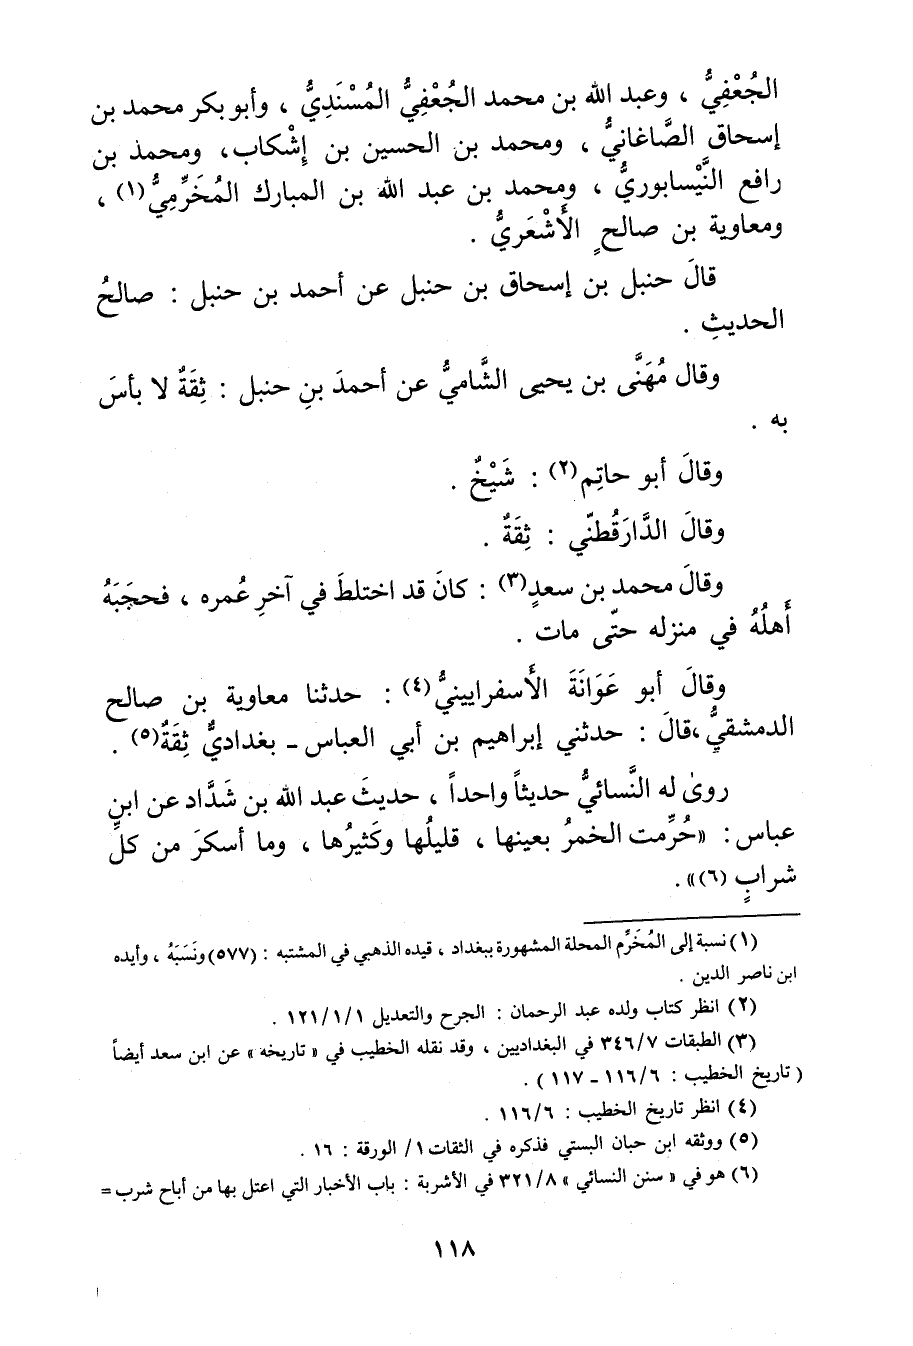 الجُعْفِيُّ ، وعبد الله بن محمد الجُعْفِيُّ المُسْنَدِيُّ ، وأبو بكر محمد بن
إسحاق الصَّاغانيُّ ، ومحمد بن الحسين بن إِشْكاب، ومحمذ بن
رافع النَّيْسابوريُّ ، ومحمد بن عبد الله بن المبارك المُخَرِّمِيُّ(١) ،
ومعاوية بن صالحٍ الأَشْعَريُّ .
قالَ حنبل بن إسحاق بن حنبل عن أحمد بن حنبل : صالحُ
الحديثِ .
وقال مُهَنَّى بن يحيى الشَّاميُّ عن أحمدَ بنِ حنبل : ثِقَةٌ لا بأسَ
به .
وقالَ أبو حاتِم(٢) : شَيْخٌ .
وقالَ الدَّارَقُطنّي : ثِقَةٌ .
وقالَ محمد بن سعدٍ(٣) : كانَ قد اختلطَ في آخرِ عُمره ، فحجَبَهُ
أَهلُهُ في منزله حتّى مات .
وقالَ أبو عَوَانَةَ الأَسفرايينيُّ(٤) : حدثنا معاوية بن صالح
الدمشقيُّ ،قالَ : حدثني إبراهيم بن أبي العباس ـ بغداديٌّ ثِقَةٌ(٥) .
روىٰ له النَّسائيُّ حديثاً واحداً ، حديثَ عبد الله بن شَدَّاد عن ابنِ
عباس : «حُرِّمت الخمرُ بعينها ، قليلُها وكَثيرُها ، وما أسكرَ من كلِّ
شرابٍ (٦)» .
(١) نسبة إلى المُخَرِّم المحلة المشهورة ببغداد ، قيده الذهبي في المشتبه : (٥٧٧) ونَسَبَهُ ، وأيده
ابن ناصر الدين .
(٢) انظر كتاب ولده عبد الرحمان : الجرح والتعديل ١٢١/١/١ .
(٣) الطبقات ٣٤٦/٧ في البغداديين ، وقد نقله الخطيب في « تاريخه » عن ابن سعد أيضاً
( تاريخ الخطيب : ١١٦/٦ ـ ١١٧ ) .
(٤) انظر تاريخ الخطيب : ١١٦/٦ .
(٥) ووثقه ابن حبان البستي فذكره في الثقات ١/ الورقة : ١٦ .
(٦) هو في « سنن النسائي » ٣٢١/٨ في الأشربة : باب الأخبار التي اعتل بها من أباح شرب =
١١٨